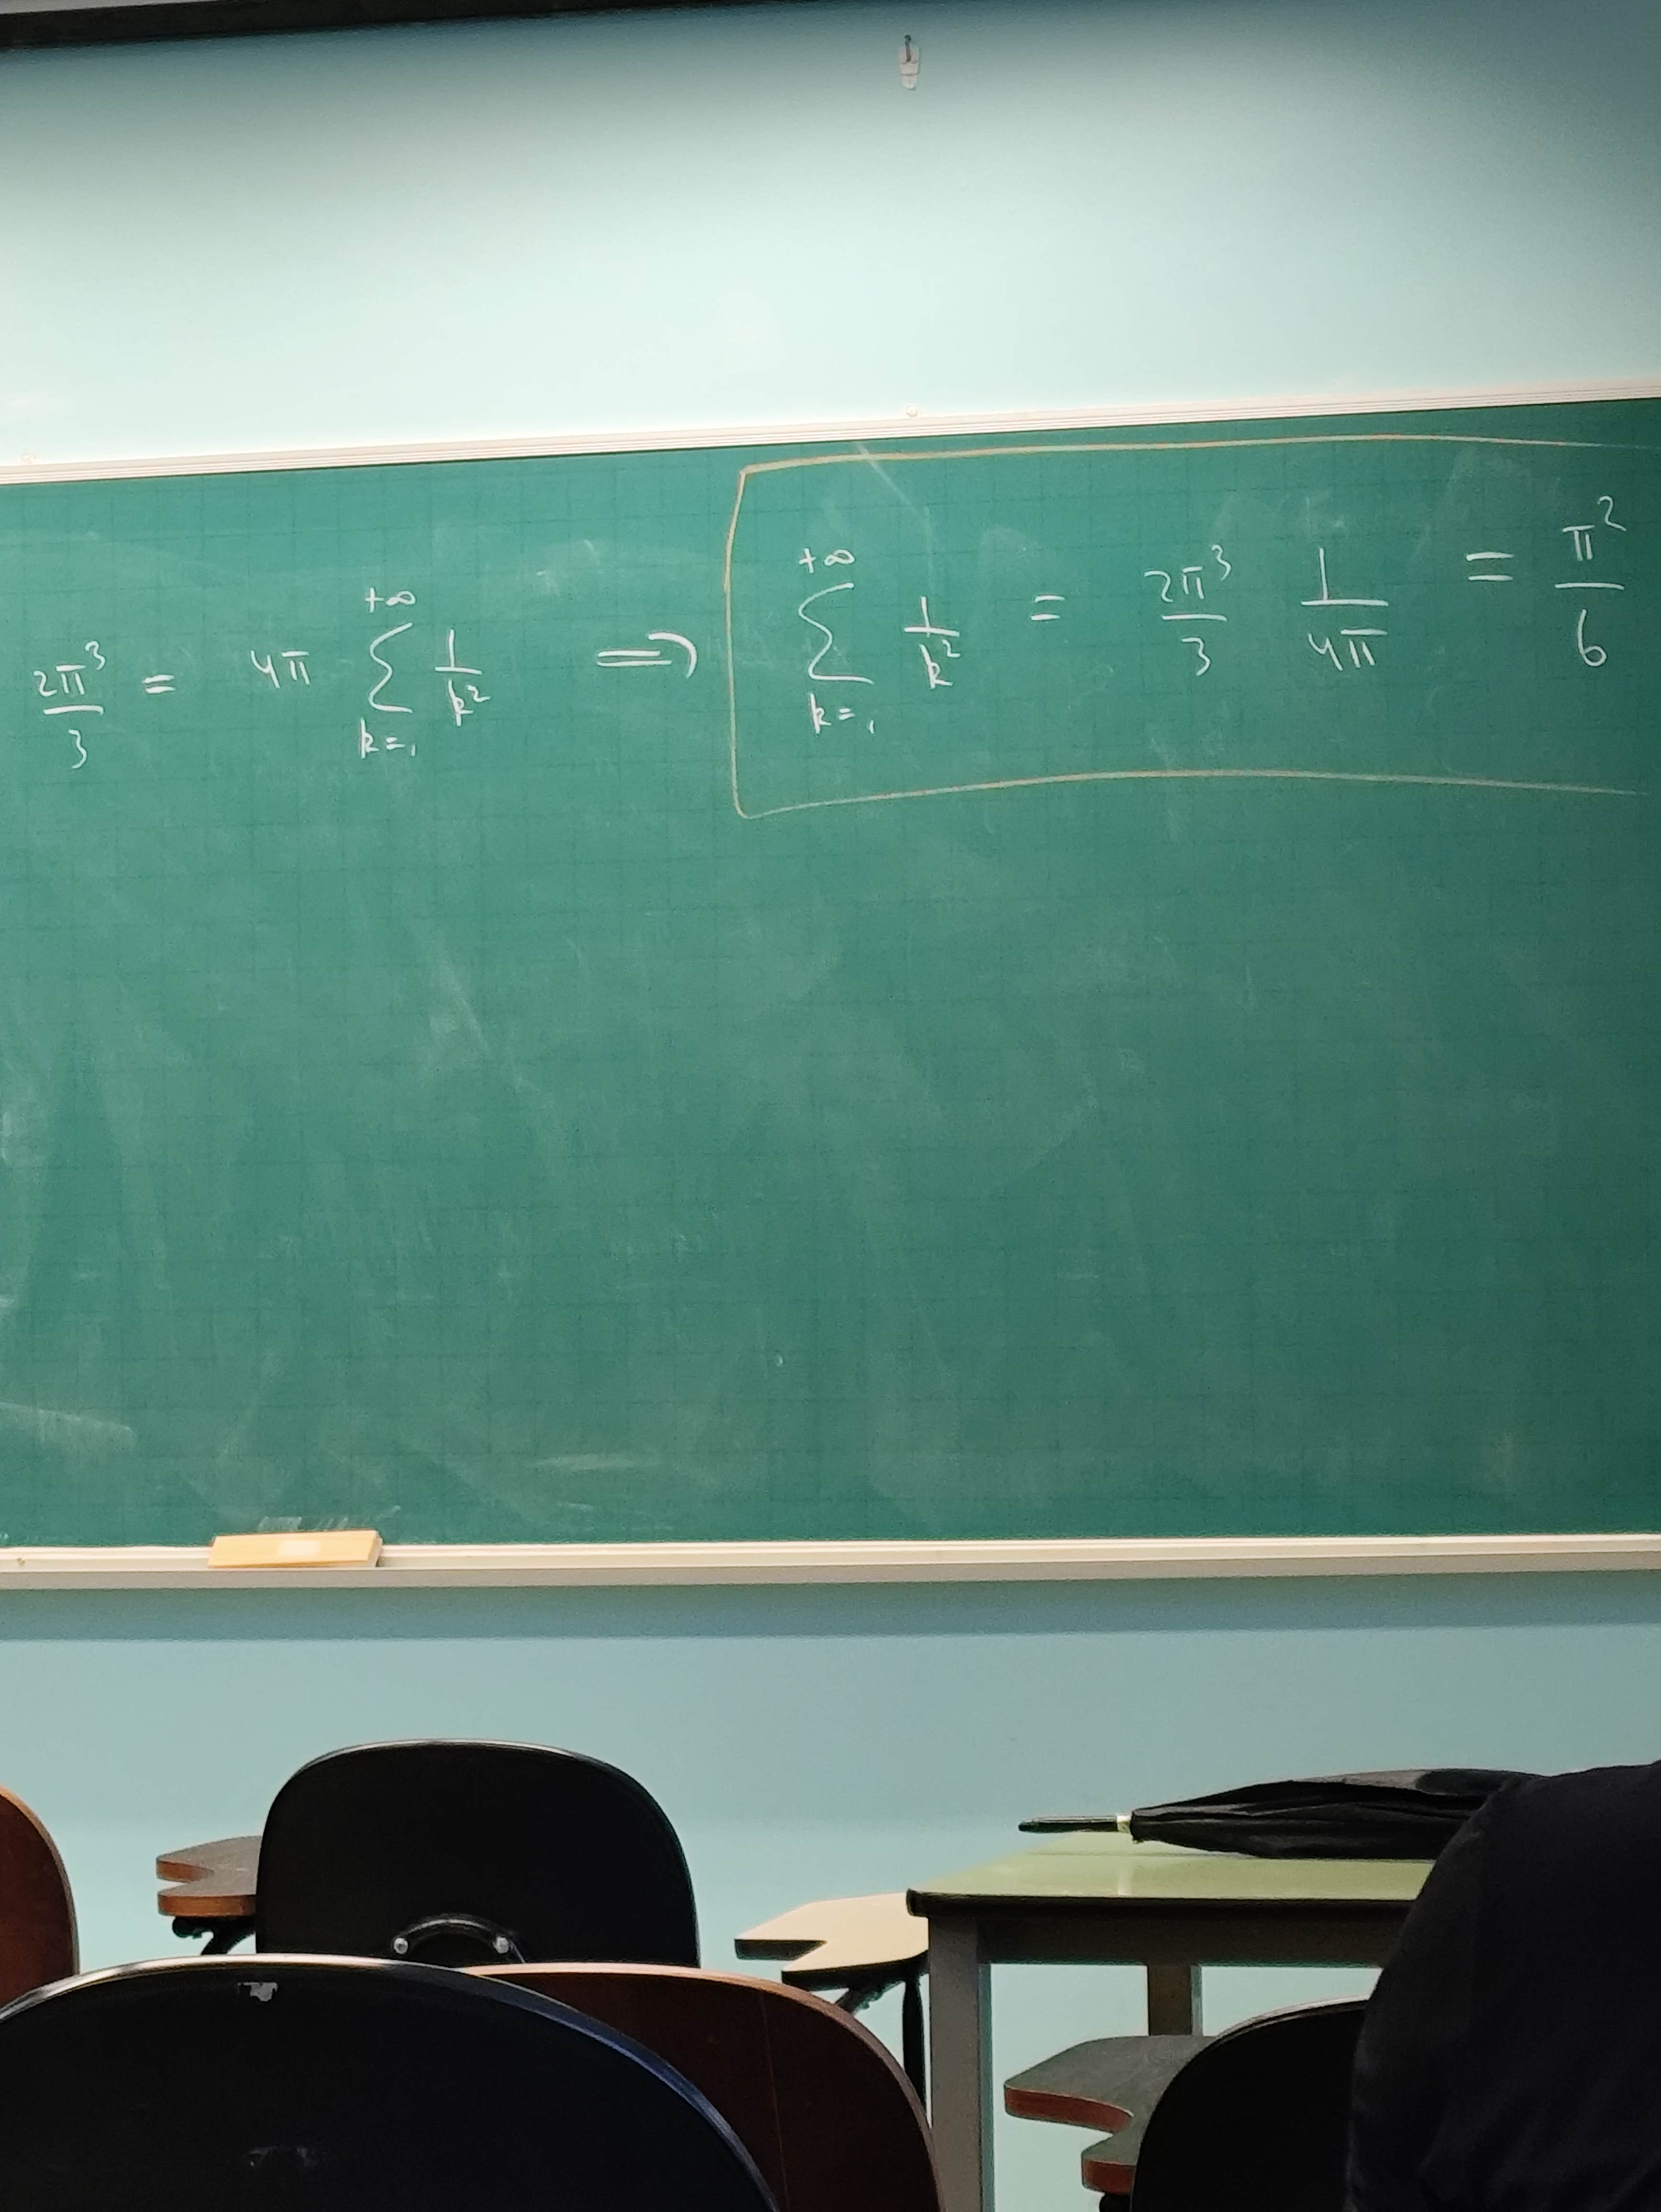 2π³/3 = 4π ∑_{k=1}^{+∞} 1/k² ⟹ ∑_{k=1}^{+∞} 1/k² = 2π³/3 1/4π = π²/6